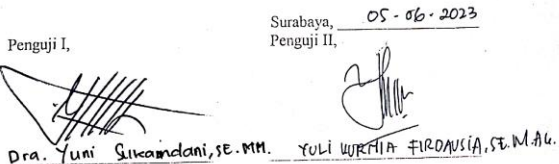 Surabaya, 05-06-2023
Penguji I,
Penguji II,
Dra. Yuni Sukamdani, SE. MM.
YULI KURNIA FIRDAUSIA, SE. M.Ak.